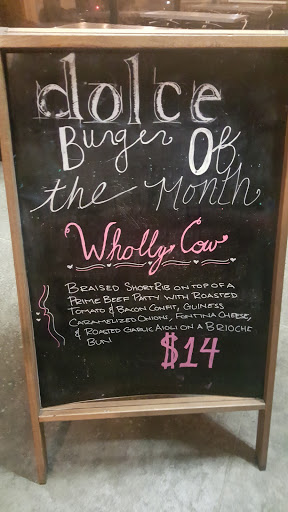 dolce
Burger Of
the Month
Wholly Cow
Braised Short Rib on top of a
Prime Beef Patty with Roasted
Tomato & Bacon Confit, Guiness
Caramelized Onions, Fontina Cheese,
& Roasted Garlic Aioli on a Brioche
Bun
$14